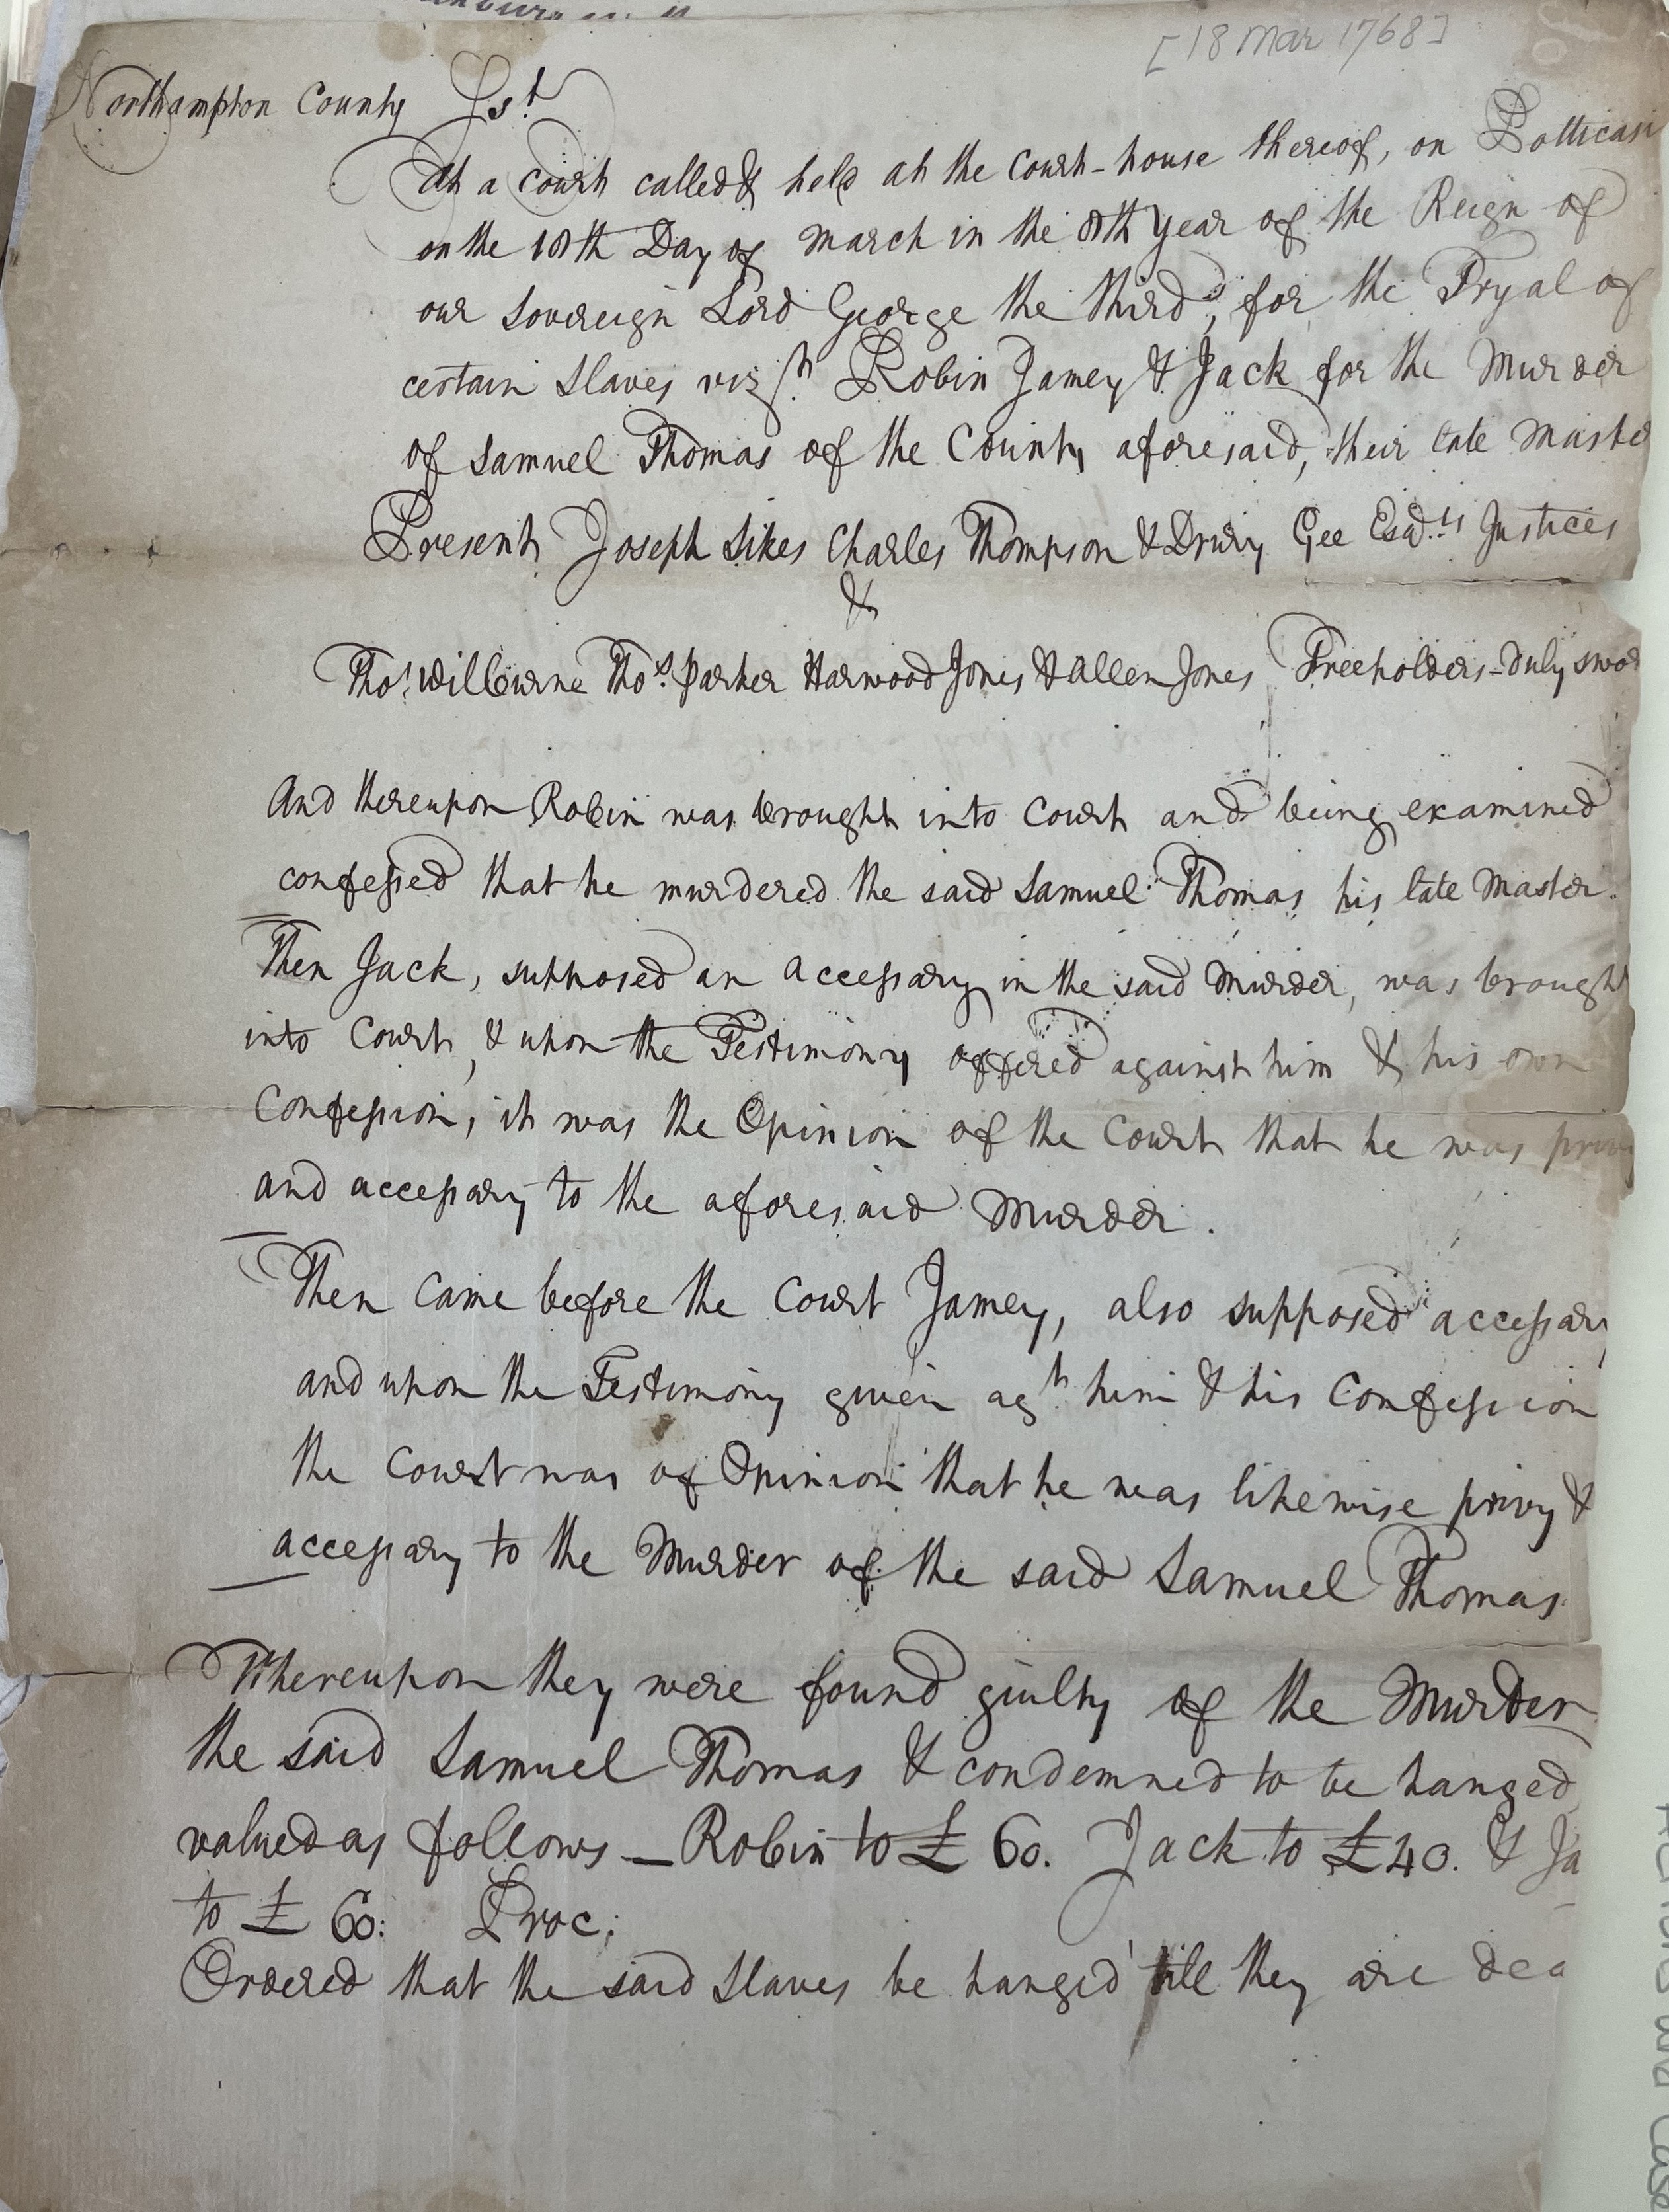 [18 Mar 1768]
Northampton County Sst
At a Court called & held at the Court-house thereof, on Potticasi
on the 18th Day of March in the 8th Year of the Reign of
our Sovereign Lord George the third, for the Tryal of
certain Slaves vizt. Robin Jamey & Jack for the Murder
of Samuel Thomas of the County aforesaid, their late Maste
Present Joseph Sikes Charles Thompson & Drury Gee Esqrs. Justices
&
Thos. Wilburne Thos. Parker Harwood Jones & Allen Jones Freeholders-duly swor
And thereupon Robin was brought into Court and being examined
confessed that he murdered the said Samuel Thomas his late Master.
Then Jack, supposed an accessary in the said Murder, was brought
into Court, & upon the Testimony offered against him & his own
Confession, it was the Opinion of the Court that he was privy
and accessary to the aforesaid Murder.
Then came before the Court Jamey, also supposed accessary
and upon the Testimony given agt. him & his Confession
the Court was of Opinion that he was likewise privy &
accessary to the Murder of the said Samuel Thomas
Whereupon they were found guilty of the Murder
the said Samuel Thomas & condemned to be hanged
valued as follows — Robin to £ 60. Jack to £40. & Ja
to £ 60: Proc;
Ordered that the said Slaves be hanged till they are dea